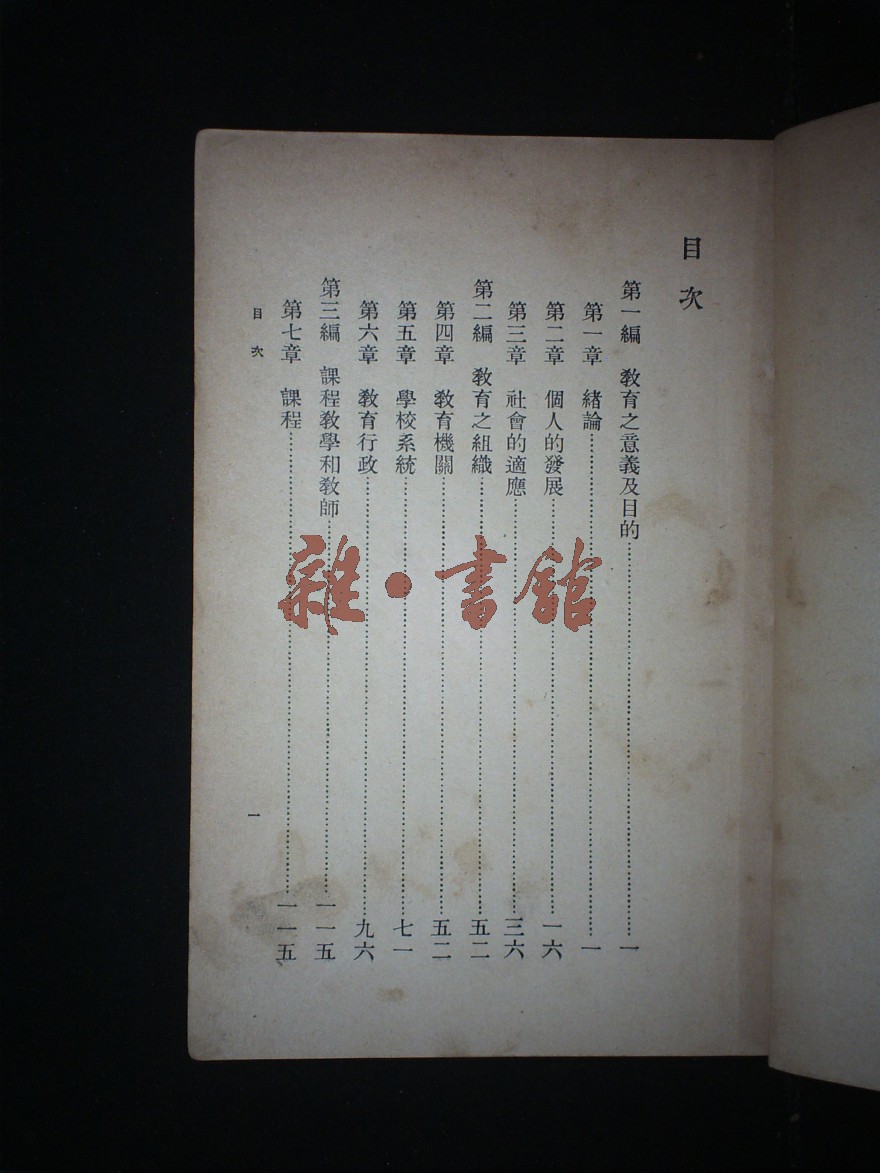 目次
第一編　教育之意義及目的……一
第一章　緒論……一
第二章　個人的發展……一六
第三章　社會的適應……三六
第二編　教育之組織……五二
第四章　教育機關……五二
第五章　學校系統……七一
第六章　教育行政……九六
第三編　課程教學和教師……一一五
第七章　課程……一一五
目次
一
雜·書館